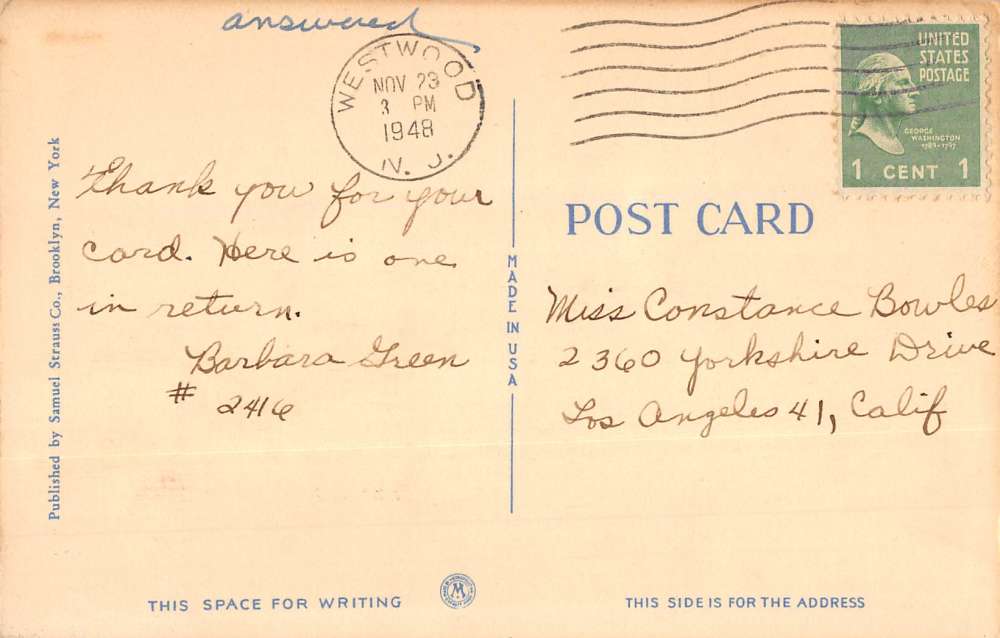 answered
WESTWOOD
NOV 23
3 PM
1948
N. J.
UNITED
STATES
POSTAGE
GEORGE
WASHINGTON
1789-1797
1 CENT 1
Thank you for your
card. Here is one
in return.
Barbara Green
# 2416
POST CARD
Miss Constance Bowles
2360 Yorkshire Drive
Los Angeles 41, Calif
MADE IN USA
Published by Samuel Strauss Co., Brooklyn, New York
THIS SPACE FOR WRITING
M
THIS SIDE IS FOR THE ADDRESS